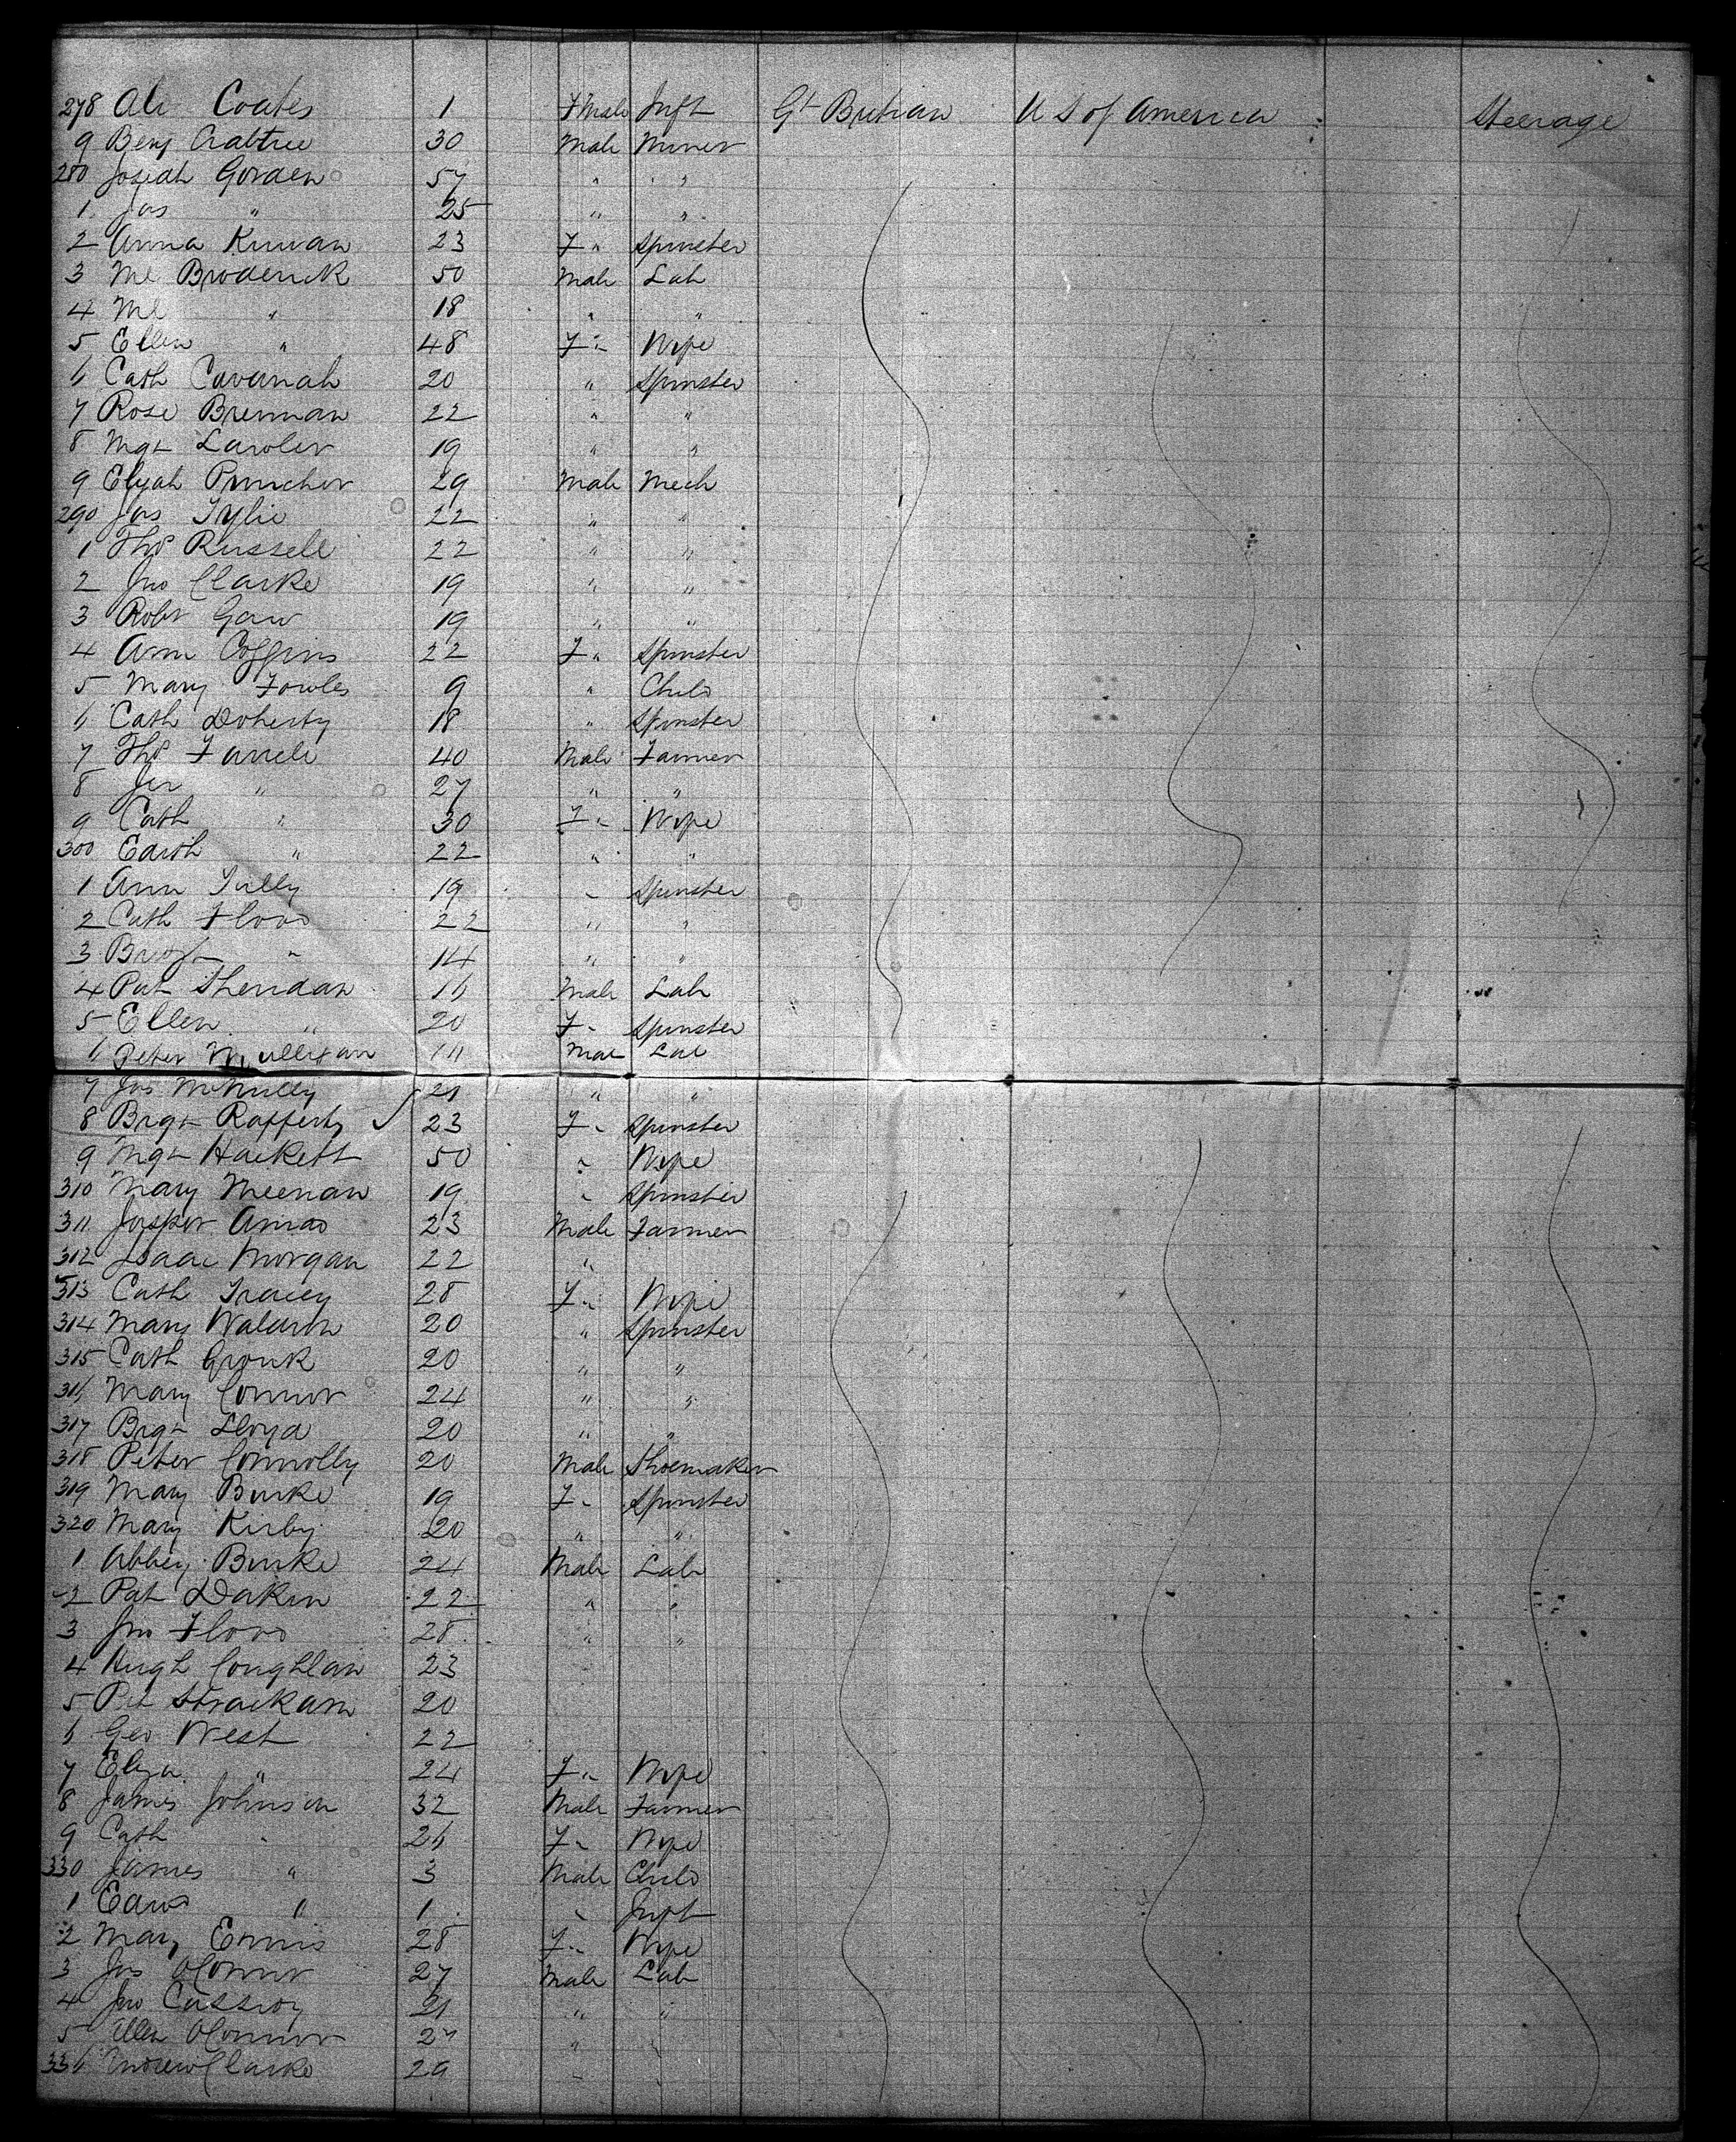 278 Ali Coates 1 Fmale Inft Gt Britian U S of America Steerage
9 Benj Crabtree 30 Male Miner
280 Josiah Gorden 57 " "
1 Jas " 25 " "
2 Anna Kirwan 23 F " Spinster
3 Ml Broderick 50 Male Lab
4 Ml " 18 " "
5 Ellen " 48 F " Wife
6 Cath Cavanah 20 " Spinster
7 Rose Brennan 22 " "
8 Mgt Lawler 19 " "
9 Elijah Pruncher 29 Male Mech
290 Jas Tylie 22 " "
1 Thos Russell 22 " "
2 Jno Clarke 19 " "
3 Robt Gaw 19 " "
4 Ann Coggins 22 F " Spinster
5 Mary Fowles 9 " Child
6 Cath Doherty 18 " Spinster
7 Thos Farrell 40 Male Farmer
8 Jer " 27 " "
9 Cath " 30 F " Wife
300 Edith " 22 " "
1 Ann Tully 19 " Spinster
2 Cath Flood 22 " "
3 Bridgt " 14 " "
4 Pat Sheridan 16 Male Lab
5 Ellen " 20 F " Spinster
6 Peter Mulligan Male Lab
7 Jas McNully 21 " "
8 Brgt Rafferty 23 F " Spinster
9 Mgt Hackett 50 " Wife
310 Mary Meenan 19 " Spinster
311 Jasper 23 Male Farmer
312 Isaac Morgan 22 "
313 Cath Tracey 28 F " Wife
314 Mary Waldron 20 " Spinster
315 Cath Gronk 20 " "
316 Mary Connor 24 " "
317 Brgt Lloyd 20 " "
318 Peter Connolly 20 Male Shoemaker
319 Mary Burke 19 F " Spinster
320 Mary Kirby 20 " "
1 Abbey Burke 24 Male Lab
2 Pat Dakin 22 " "
3 Jno Flood 28 " "
4 Hugh Coughlan 23
5 Pat Strackan 20
6 Geo West 22
7 Eliza " 24 F " Wife
8 James Johnson 32 Male Farmer
9 Cath " 26 F " Wife
330 James " 3 Male Child
1 Edwd " 1 " Inft
2 Mary Ennis 28 F " Wife
3 Jas OConnor 27 Male Lab
4 Jno Cassidy 21 " "
5 Ellen OConnor 27 "
336 Andrew Clarke 29 "